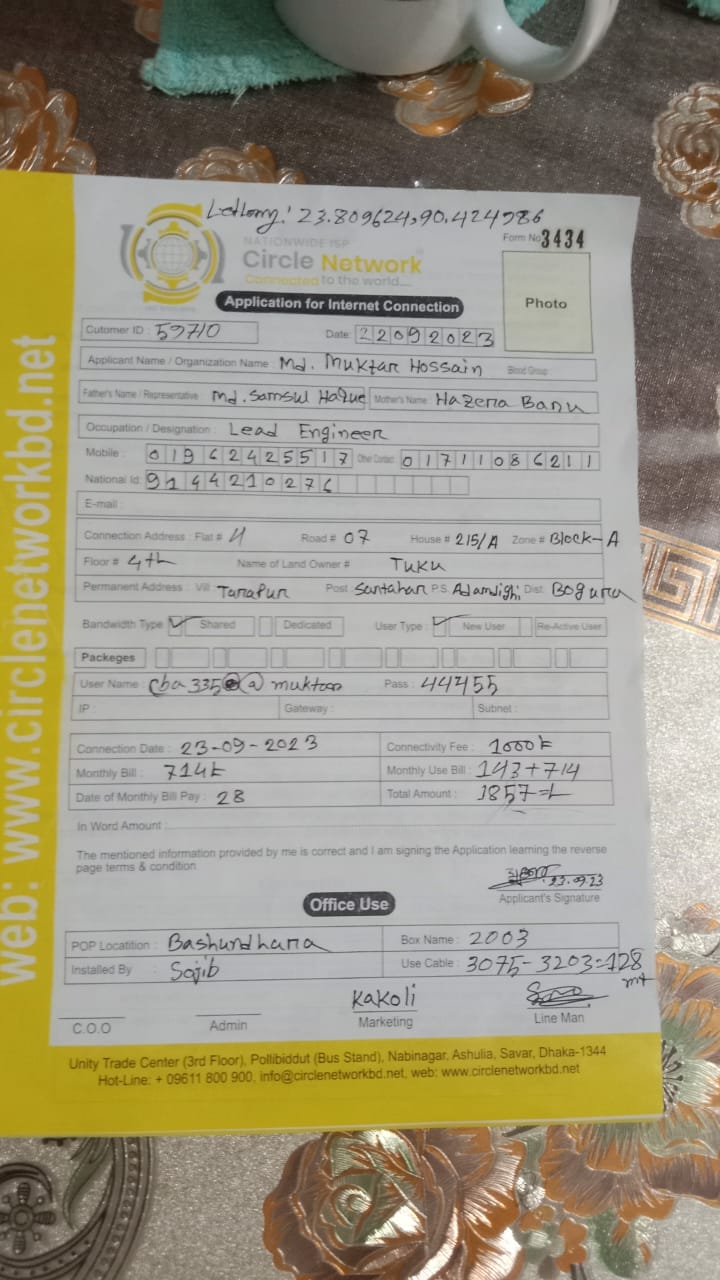 Letlong: 23.809624,90.424986
NATIONWIDE ISP
Form No 3434
Circle Network
Connected to the world....
Application for Internet Connection
Photo
Cutomer ID : 59710 Date: 22092023
Applicant Name / Organization Name : Md. Muktar Hossain Blood Group :
Father's Name / Representative : Md. Samsul Haque Mother's Name : Hazera Banu
Occupation / Designation : Lead Engineer
Mobile : 01962425517 Other Contact 01711086211
National Id: 9144210276
E-mail :
Connection Address : Flat # Road # 07 House # 215/A Zone # Block-A
Floor # 4th Name of Land Owner # Tuku
Permanent Address : Vill : Tarapur Post Santahar P.S. Adamdighi Dist. Bogura
Bandwidth Type ✓ Shared Dedicated User Type : ✓ New User Re-Active User
Packeges
User Name : Cba335 @ Pass : 44455
IP : Gateway : Subnet :
Connection Date : 23-09-2023 Connectivity Fee : 1000
Monthly Bill : 714 Monthly Use Bill : 143+714
Date of Monthly Bill Pay : 28 Total Amount : 1857
In Word Amount :
The mentioned information provided by me is correct and I am signing the Application learning the reverse
page terms & condition
23.09.23
Applicant's Signature
Office Use
POP Locatition : Bashundhara Box Name : 2003
Installed By : Sojib Use Cable : 3075-3203=128
mt
Kakoli
C.O.O Admin Marketing Line Man
Unity Trade Center (3rd Floor), Pollibiddut (Bus Stand), Nabinagar, Ashulia, Savar, Dhaka-1344
Hot-Line: + 09611 800 900, info@circlenetworkbd.net, web: www.circlenetworkbd.net
web: www.circlenetworkbd.net